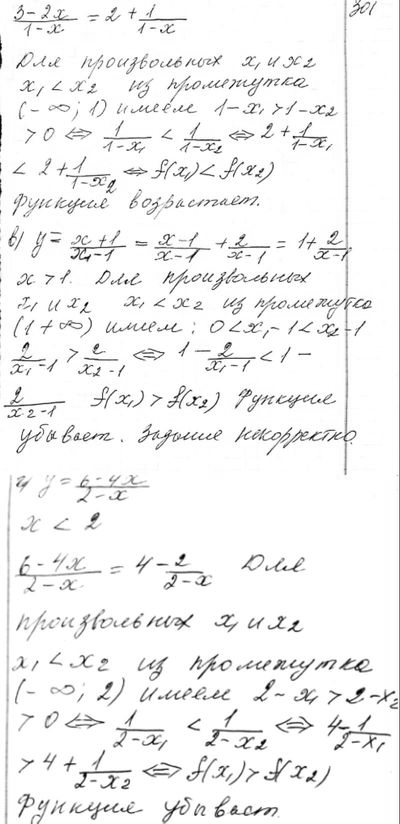 301
3-2x/1-x = 2 + 1/1-x
Для произвольных x₁ и x₂
x₁ < x₂ из промежутка
(-∞; 1) имеем 1-x₁ > 1-x₂
> 0 ⇔ 1/1-x₁ < 1/1-x₂ ⇔ 2 + 1/1-x₁
< 2 + 1/1-x₂ ⇔ f(x₁) < f(x₂)
Функция возрастает.
в) y = x+1/x-1 = x-1/x-1 + 2/x-1 = 1 + 2/x-1
x > 1. Для произвольных
x₁ и x₂ x₁ < x₂ из промежутка
(1 +∞) имеем; 0 < x₁-1 < x₂-1
2/x₁-1 > 2/x₂-1 ⇔ 1 - 2/x₁-1 < 1 -
2/x₂-1 f(x₁) > f(x₂) Функция
убывает. Задание некорректно.
г) y = 6-4x/2-x
x < 2
6-4x/2-x = 4 - 2/2-x Для
произвольных x₁ и x₂
x₁ < x₂ из промежутка
(-∞; 2) имеем 2-x₁ > 2-x₂
> 0 ⇔ 1/2-x₁ < 1/2-x₂ ⇔ 4-1/2-x₁
> 4 + 1/2-x₂ ⇔ f(x₁) > f(x₂)
Функция убывает.